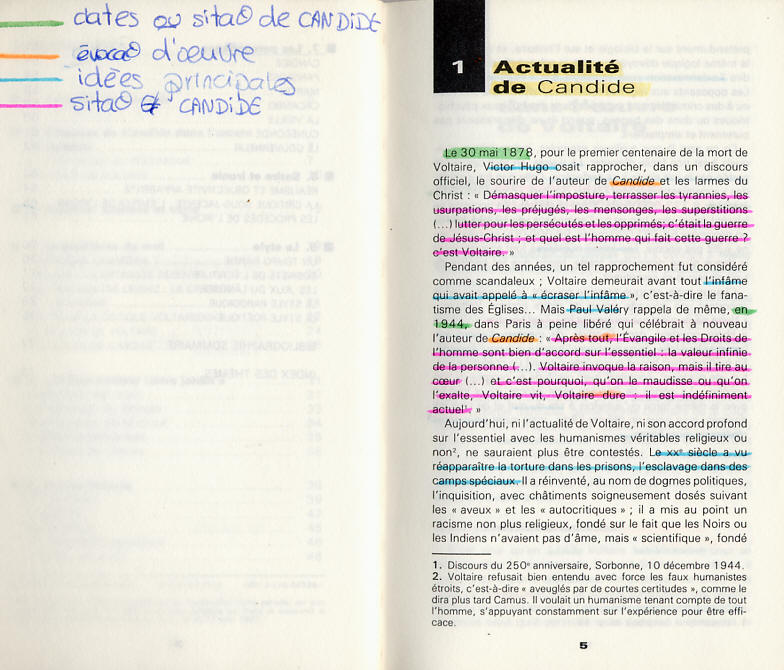 dates ou sita° de CANDIDE
évoca° d'œuvre
idées principales
sita° CANDIDE
1
Actualité
de Candide
Le 30 mai 1878, pour le premier centenaire de la mort de
Voltaire, Victor Hugo osait rapprocher, dans un discours
officiel, le sourire de l'auteur de Candide et les larmes du
Christ : « Démasquer l'imposture, terrasser les tyrannies, les
usurpations, les préjugés, les mensonges, les superstitions
(...) lutter pour les persécutés et les opprimés, c'était la guerre
de Jésus-Christ ; et quel est l'homme qui fait cette guerre ?
c'est Voltaire. »
Pendant des années, un tel rapprochement fut considéré
comme scandaleux ; Voltaire demeurait avant tout l'infâme
qui avait appelé à « écraser l'infâme », c'est-à-dire le fana-
tisme des Églises... Mais Paul Valéry rappela de même, en
1944, dans Paris à peine libéré qui célébrait à nouveau
l'auteur de Candide : « Après tout, l'Évangile et les Droits de
l'homme sont bien d'accord sur l'essentiel : la valeur infinie
de la personne (...). Voltaire invoque la raison, mais il tire au
cœur (...) et c'est pourquoi, qu'on le maudisse ou qu'on
l'exalte, Voltaire vit, Voltaire dure : il est indéfiniment
actuel¹. »
Aujourd'hui, ni l'actualité de Voltaire, ni son accord profond
sur l'essentiel avec les humanismes véritables religieux ou
non², ne sauraient plus être contestés. Le XXe siècle a vu
réapparaître la torture dans les prisons, l'esclavage dans des
camps spéciaux. Il a réinventé, au nom de dogmes politiques,
l'inquisition, avec châtiments soigneusement dosés suivant
les « aveux » et les « autocritiques » ; il a mis au point un
racisme non plus religieux, fondé sur le fait que les Noirs ou
les Indiens n'avaient pas d'âme, mais « scientifique », fondé
1. Discours du 250e anniversaire, Sorbonne, 10 décembre 1944.
2. Voltaire refusait bien entendu avec force les faux humanistes
étroits, c'est-à-dire « aveuglés par de courtes certitudes », comme le
dira plus tard Camus. Il voulait un humanisme tenant compte de tout
l'homme, s'appuyant constamment sur l'expérience pour être effi-
cace.
5